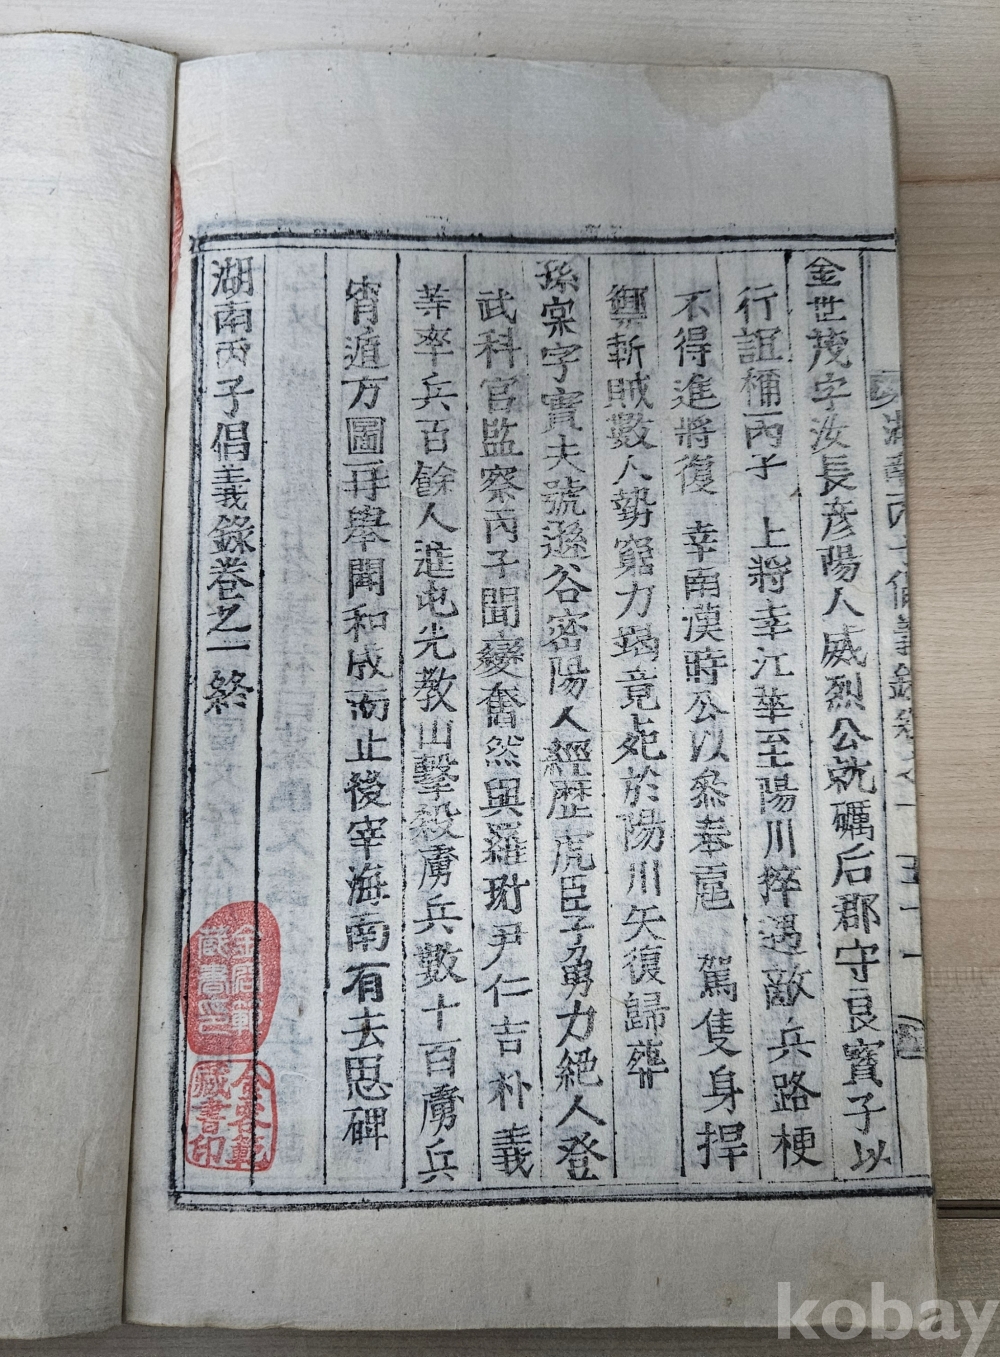 金世茂字汝長彦陽人威烈公就礪后郡守良寶子以
行誼稱丙子 上將幸江華至陽川猝遇敵兵路梗
不得進將復 幸南漢時公以叅奉扈 駕隻身捍
禦斬賊數人勢窮力竭竟死於陽川矢復歸葬
孫宲字實夫號遜谷密陽人經歷虎臣子勇力絕人登
武科官監察丙子聞變奮然與羅珘尹仁吉朴義
等率兵百餘人進屯光教山擊殺虜兵數十百虜兵
宵遁方圖再舉聞和成而止後宰海南有去思碑
湖南丙子倡義錄卷之一終
藏書印
kobay